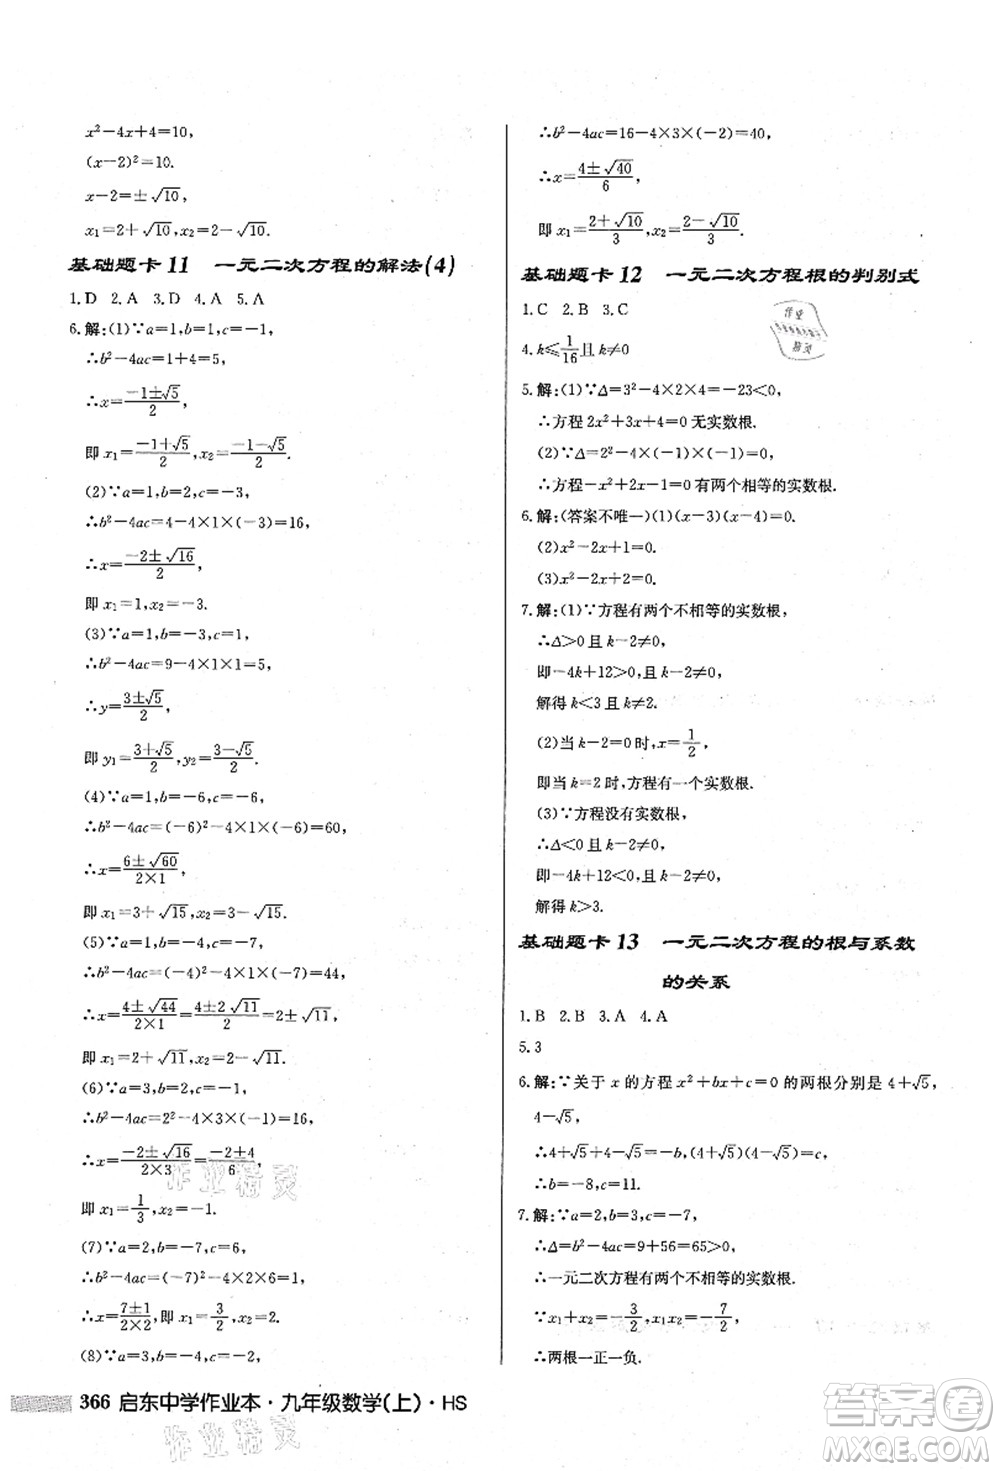 x²-4x+4=10,
(x-2)²=10.
x-2=±√10,
x₁=2+√10,x₂=2-√10.
基础题卡11 一元二次方程的解法(4)
1.D 2.A 3.D 4.A 5.A
6.解:(1)∵a=1,b=1,c=-1,
∴b²-4ac=1+4=5,
∴x=(-1±√5)/2,
即x₁=(-1+√5)/2,x₂=(-1-√5)/2.
(2)∵a=1,b=2,c=-3,
∴b²-4ac=4-4×1×(-3)=16,
∴x=(-2±√16)/2,
即x₁=1,x₂=-3.
(3)∵a=1,b=-3,c=1,
∴b²-4ac=9-4×1×1=5,
∴y=(3±√5)/2,
即y₁=(3+√5)/2,y₂=(3-√5)/2.
(4)∵a=1,b=-6,c=-6,
∴b²-4ac=(-6)²-4×1×(-6)=60,
∴x=(6±√60)/(2×1),
即x₁=3+√15,x₂=3-√15.
(5)∵a=1,b=-4,c=-7,
∴b²-4ac=(-4)²-4×1×(-7)=44,
∴x=(4±√44)/(2×1)=(4±2√11)/2=2±√11,
即x₁=2+√11,x₂=2-√11.
(6)∵a=3,b=2,c=-1,
∴b²-4ac=2²-4×3×(-1)=16,
∴x=(-2±√16)/(2×3)=(-2±4)/6,
即x₁=1/3,x₂=-1.
(7)∵a=2,b=-7,c=6,
∴b²-4ac=(-7)²-4×2×6=1,
∴x=(7±1)/(2×2),即x₁=3/2,x₂=2.
(8)∵a=3,b=-4,c=-2,
∴b²-4ac=16-4×3×(-2)=40,
∴x=(4±√40)/6,
即x₁=(2+√10)/3,x₂=(2-√10)/3.
基础题卡12 一元二次方程根的判别式
1.C 2.B 3.C
4.k≤1/16且k≠0
5.解:(1)∵Δ=3²-4×2×4=-23<0,
∴方程2x²+3x+4=0无实数根.
(2)∵Δ=2²-4×(-1)×(-1)=0,
∴方程-x²+2x-1=0有两个相等的实数根.
6.解:(答案不唯一)(1)(x-3)(x-4)=0.
(2)x²-2x+1=0.
(3)x²-2x+2=0.
7.解:(1)∵方程有两个不相等的实数根,
∴Δ>0且k-2≠0,
即-4k+12>0且k-2≠0,
解得k<3且k≠2.
(2)当k-2=0时,x=1/2,
即当k=2时,方程有一个实数根.
(3)∵方程没有实数根,
∴Δ<0且k-2≠0,
即-4k+12<0且k-2≠0,
解得k>3.
基础题卡13 一元二次方程的根与系数
的关系
1.B 2.B 3.A 4.A
5.3
6.解:∵关于x的方程x²+bx+c=0的两根分别是4+√5,
4-√5,
∴4+√5+4-√5=-b,(4+√5)(4-√5)=c,
∴b=-8,c=11.
7.解:∵a=2,b=3,c=-7,
∴Δ=b²-4ac=9+56=65>0,
∴一元二次方程有两个不相等的实数根.
∵x₁+x₂=-3/2,x₁x₂=-7/2,
∴两根一正一负.
366 启东中学作业本·九年级数学(上)·HS
作业精灵
作业精灵
作业
精灵
答案圈
MXQE.COM